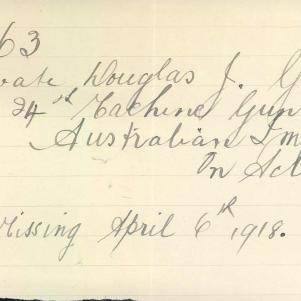 63
vate Douglas J. G
24th Machine Gun
Australian Im
On Act
Missing April 6th, 1918.